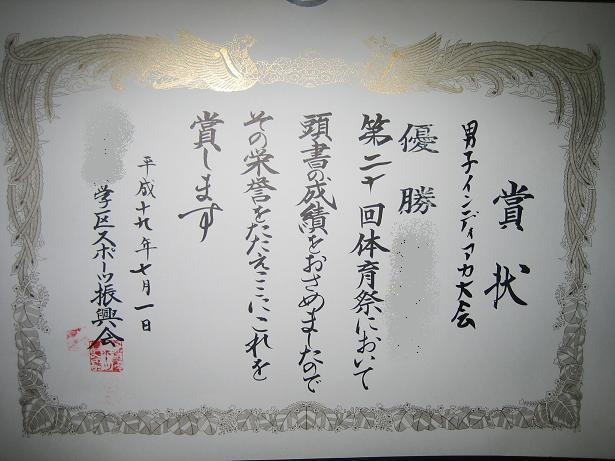 賞状
男子インディアカ大会
優勝
第二十回体育祭において
頭書の成績をおさめましたので
その栄誉をたたえここにこれを
賞します
平成十九年七月一日
学区スポーツ振興会